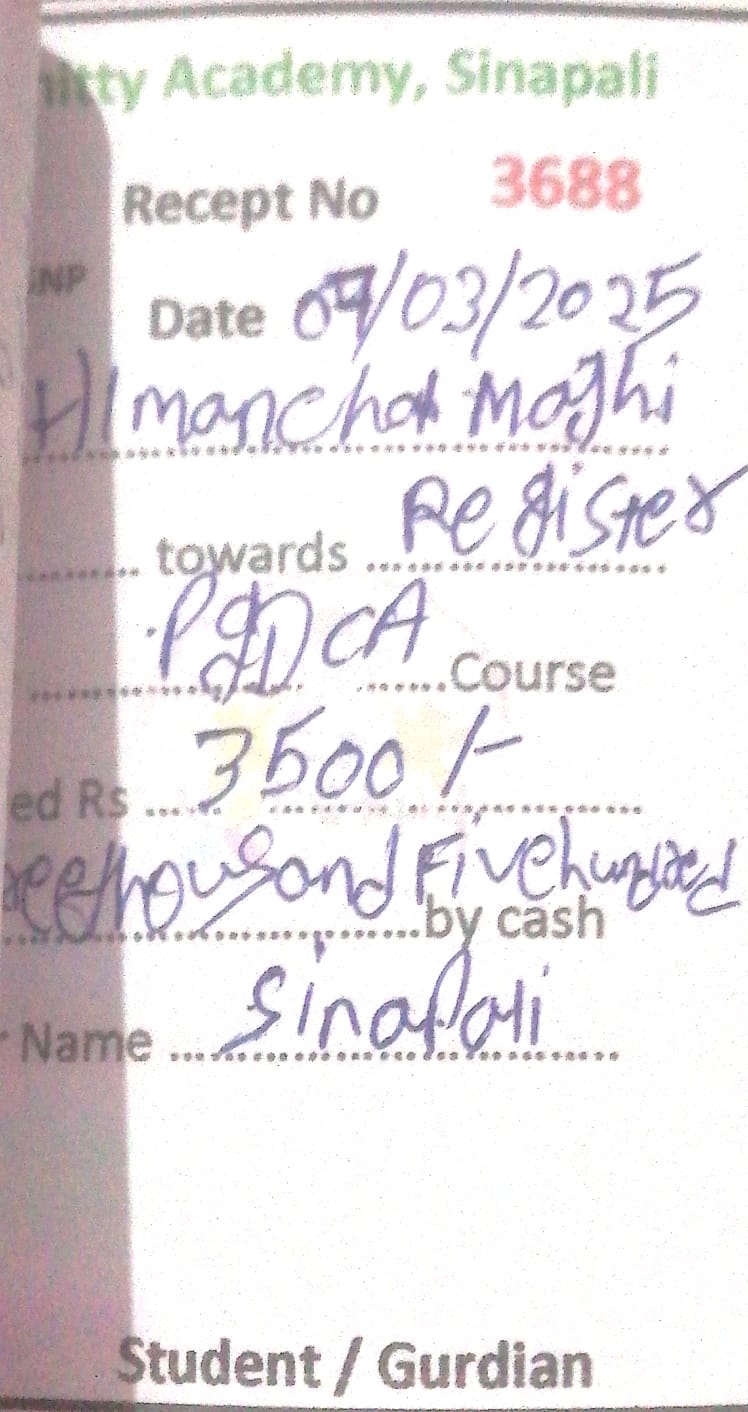 nitty Academy, Sinapali
Recept No 3688
GNP
Date 07/03/2025
Himanchal Majhi
.......... towards .......... Register
PGDCA .......... Course
ed Rs .......... 3500/-
reethousand Fivehundred
.......... by cash
Name .......... Sinapali
Student / Gurdian